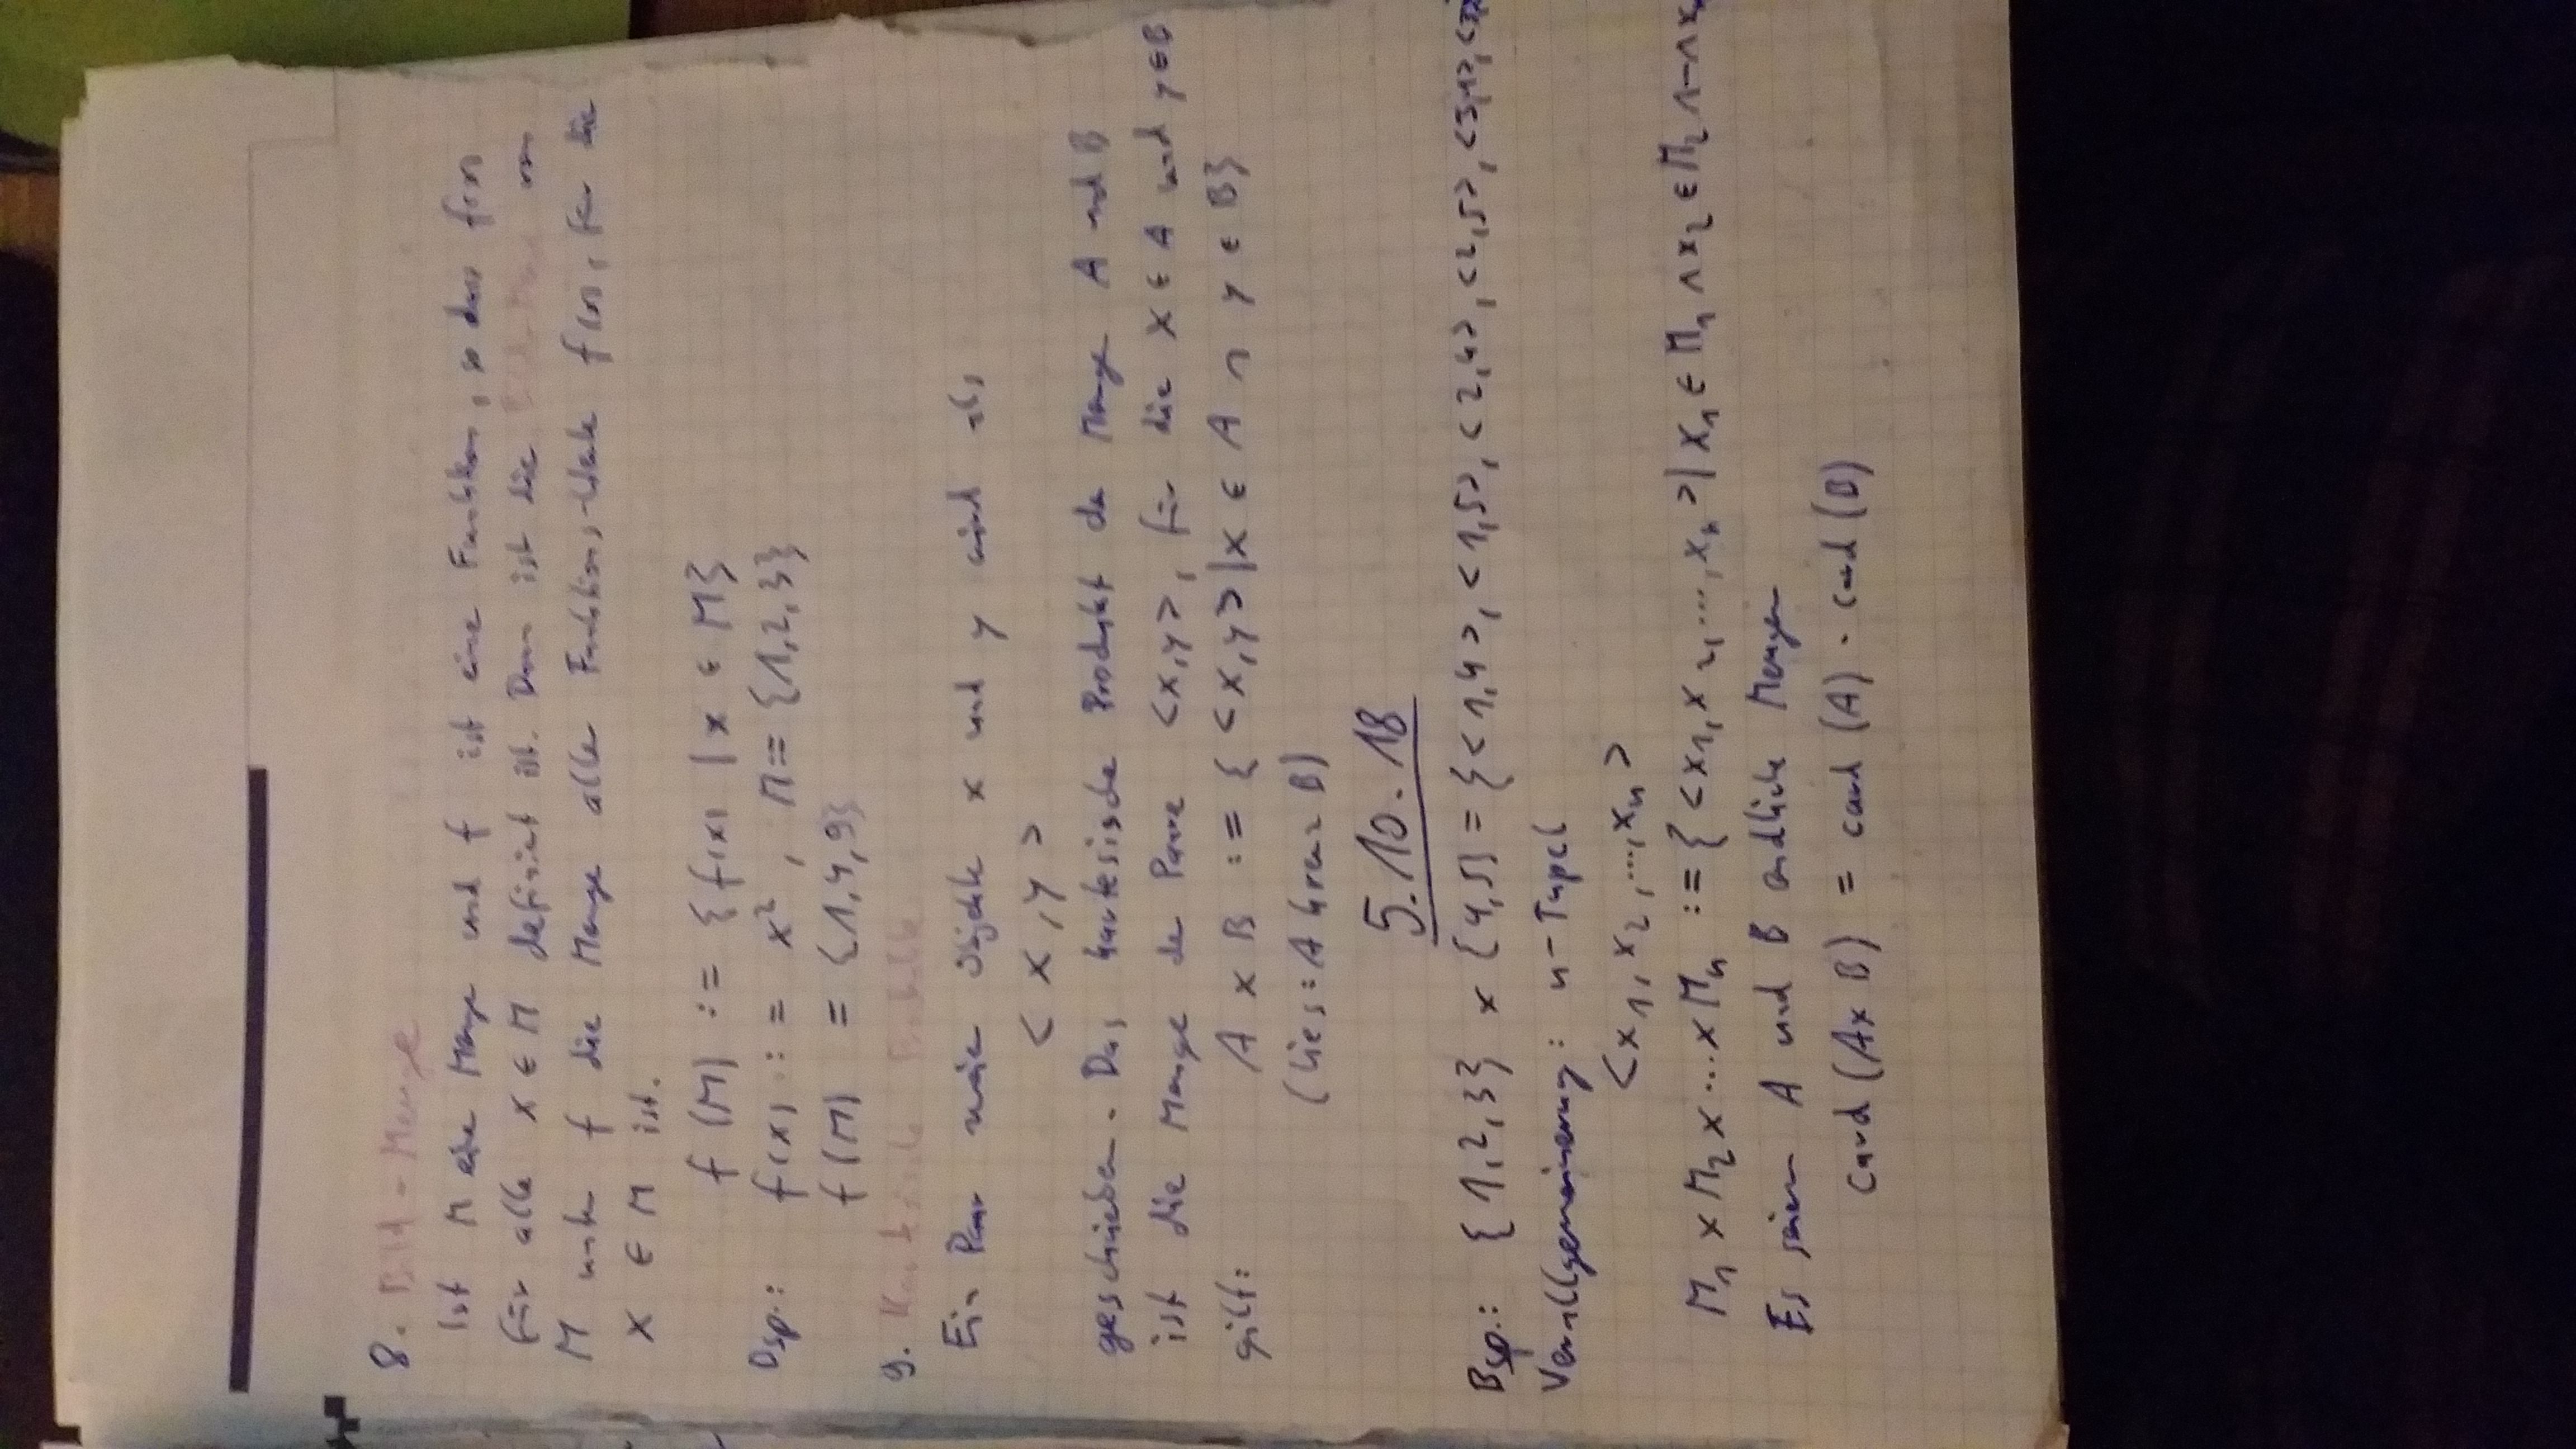 8. Bild-Menge
Ist M eine Menge und f ist eine Funktion, so dass f(x)
für alle x ∈ M definiert ist. Dann ist die Bild-Menge von
M unter f die Menge aller Funktions-Werte f(x), für die
x ∈ M ist.
f(M) := {f(x) | x ∈ M}
Bsp.: f(x) := x², M = {1,2,3}
f(M) = {1,4,9}
9. Kartesische Produkte
Ein Paar zweier Objekte x und y wird als
< x, y >
geschrieben. Das kartesische Produkt der Mengen A und B
ist die Menge der Paare <x,y>, für die x ∈ A und y ∈ B
gilt: A x B := { <x,y> | x ∈ A ∧ y ∈ B}
(lies: A kreuz B)
5.10.18
Bsp.: {1,2,3} x {4,5} = {<1,4>, <1,5>, <2,4>, <2,5>,
Verallgemeinerung: n-Tupel
<x₁, x₂, ..., xₙ>
M₁ x M₂ x ... x Mₙ := { <x₁, x₂, ..., xₙ> | x₁ ∈ M₁ ∧ x₂ ∈ M₂ ∧ – ∧ x
Es seien A und B endliche Mengen
card (A x B) = card (A) · card (B)